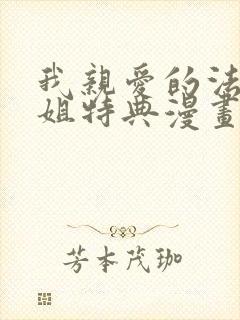 我親愛的法
姐特典漫畫
芳本茂珈